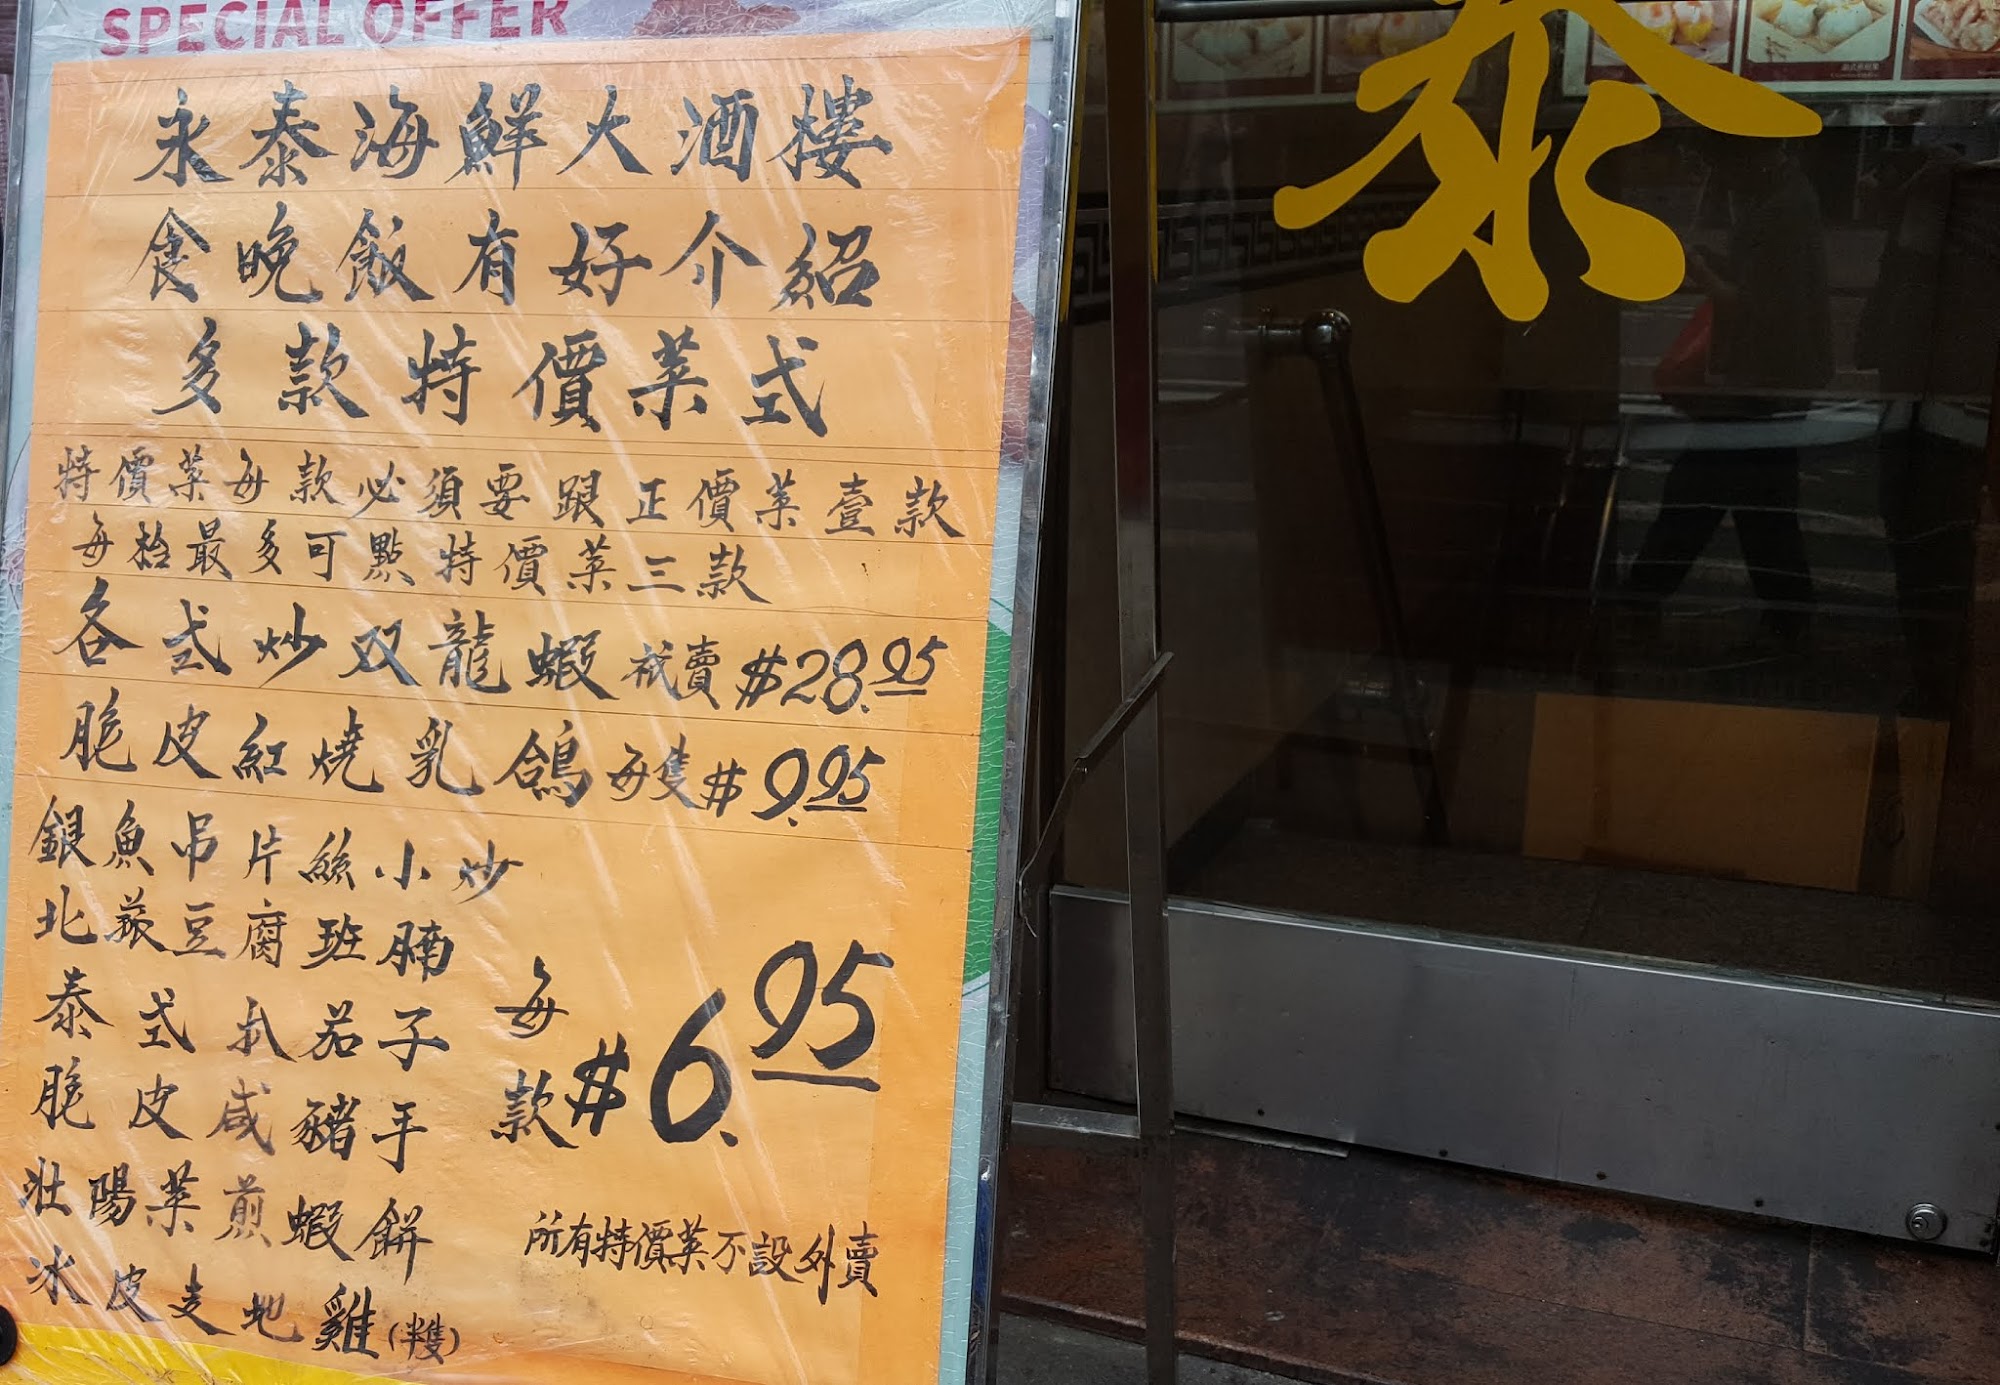 SPECIAL OFFER
永泰海鮮大酒樓
食晚飯有好介紹
多款特價菜式
特價菜每款必須要跟正價菜壹款
每枱最多可點特價菜三款
各式炒双龍蝦祇賣$28.95
脆皮紅燒乳鴿每隻$9.95
銀魚吊片絲小炒
北菰豆腐班腩
泰式扒茄子
脆皮咸豬手
壯陽菜煎蝦餅
冰皮走地雞(半隻)
每款$6.95
所有特價菜不設外賣
泰